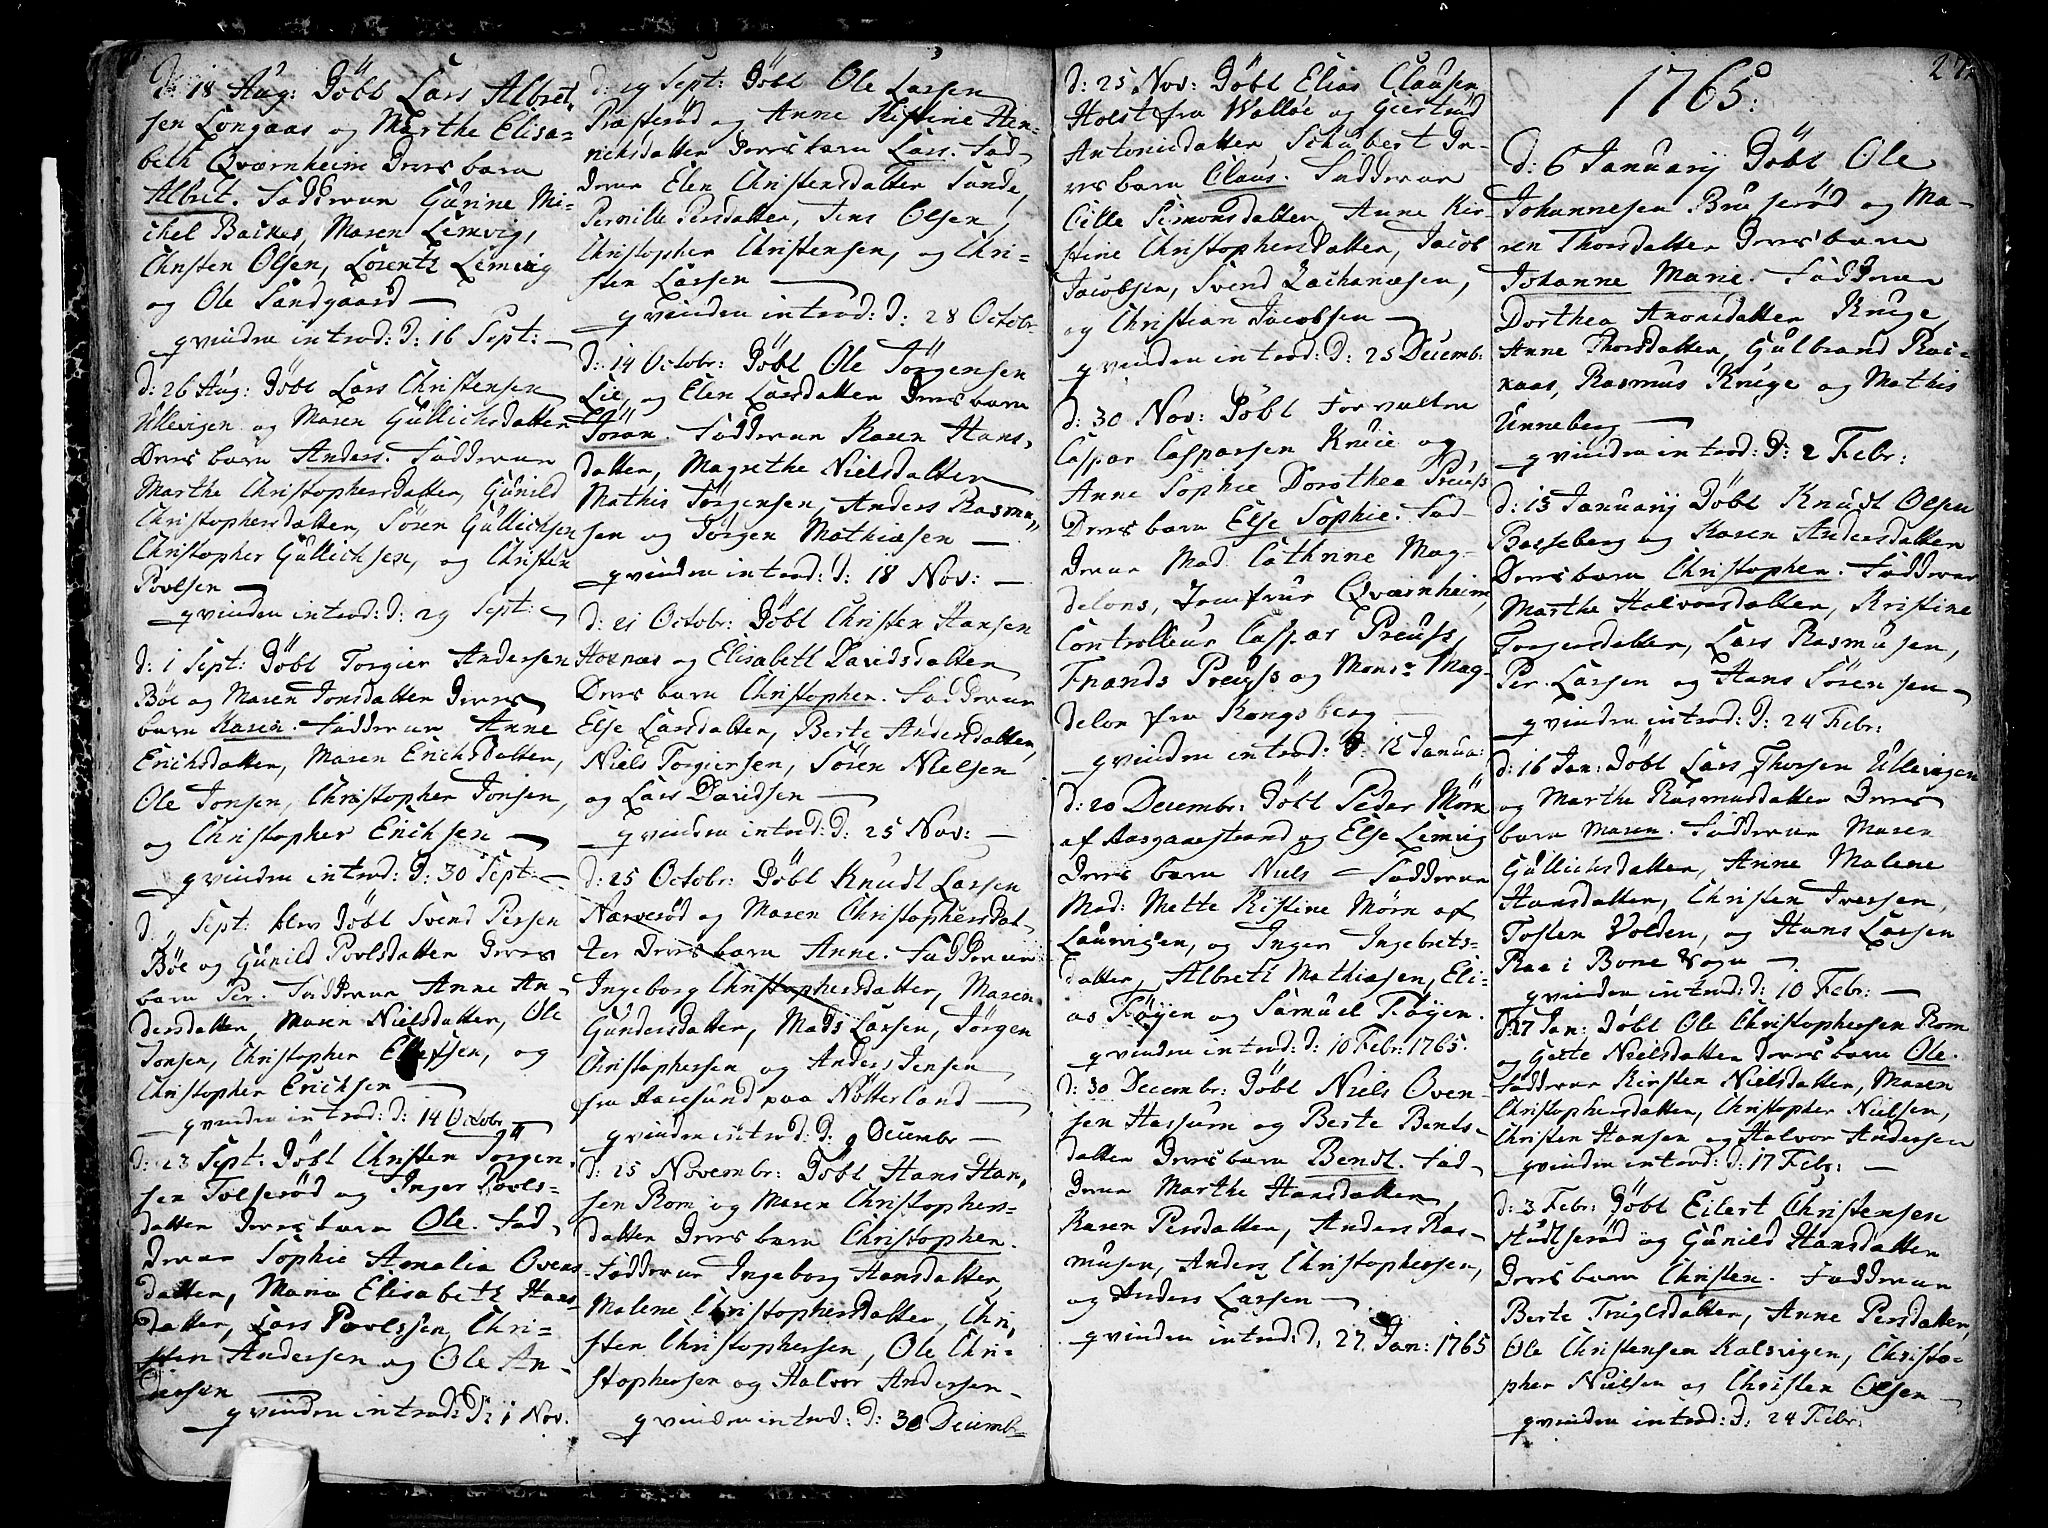 D: 18 Aug: Döbt Lars Albret
sen Longaas og Marthe Elisa-
beth Qværnheim Deres barn
Albret. Fadderne Gurine Mi-
chel Backes, Maren Lemvig,
Christen Olsen, Lorentz Lemvig
og Ole Sandgaard —
qvinden introd: D: 16 Sept: —
d: 26 Aug: Döbt Lars Christensen
Ullevigen og Maren Gullichsdatter
Deres barn Anders. Fadderne
Marthe Christophersdatter, Gunild
Christophersdatter, Sören Gullichsen
Christopher Gullichsen, og Christen
Povlsen —
qvinden introd: D: 29 Sept: —
d: 1 Sept: Döbt Torgier Andersen
Böe og Maren Jonsdatter Deres
barn Karen. Fadderne Anne
Erichsdatter, Maren Erichsdatter,
Ole Jonsen, Christopher Jonsen,
og Christopher Erichsen —
qvinden introd: D: 30 Sept: —
d: 9 Sept: blev Döbt Svend Persen
Böe og Gunild Povlsdatter Deres
barn Per. Fadderne Anne An-
dersdatter, Maren Nielsdatter, Ole
Jonsen, Christopher Ellefsen, og
Christopher Erichsen —
qvinden introd: D: 14 Octobr
d: 23 Sept: Döbt Christen Jörgen
sen Tolserød og Inger Povls-
datter Deres barn Ole. Fad-
derne Sophie Amalia Ovens
datter, Maria Elisabeth Hans
datter, Lars Povlssen, Chri-
sten Andersen og Ole An-
dersen
qvinden introd: D: 1 Nov.
d: 29 Sept: Döbt Ole Larsen
Præsterød og Anne Kistine Hen-
richsdatter Deres barn Lars. Fad-
derne Elen Christensdatter Sande,
Pernille Persdatter, Jens Olsen,
Christopher Christensen, og Chri-
sten Larsen —
qvinden introd: D: 28 Octobr
D: 14 Octobr: Döbt Ole Jörgensen
Lie, og Elen Larsdatter Deres barn
Jöran. Fadderne Karen Hans,
datter, Magrethe Nielsdatter
Mathis Jörgensen, Anders Rasmu,
sen og Jörgen Mathiæsen —
qvinden introd: D: 18 Nov: —
d: 21 Octobr: Döbt Christen Hansen
Hornæs og Elisabeth Davidsdatter
Deres barn Christopher. Fadderne
Else Larsdatter, Berte Andersdatter,
Niels Torgiersen, Sören Nielsen
og Lars Davidsen —
qvinden introd: D: 25 Nov: —
d: 25 Octobr: Döbt Knudt Larsen
Narverød og Maren Christophersdat-
ter Deres barn Anne. Fadderne
Ingeborg Christophersdatter, Maren
Gundersdatter, Mads Larsen, Jörgen
Christophersen og Anders Jensen,
fra Aaresund paa Nötterland —
qvinden introd: D: 9 Decembr —
d: 25 Novembr: Döbt Hans Han,
sen Rom og Maren Christophers-
datter Deres barn Christopher.
Fadderne Ingeborg Hansdatter,
Malene Christophersdatter, Chri,
sten Christophersen, Ole Chri-
stophersen og Halvor Andersen —
qvinden introd: D: 30 Decemb-
d: 25 Nov: Döbt Elias Clausen
Holst fra Walløe og Giertrud
Antonisdatter Schubert De-
res barn Claus. Fadderne
Cille Simonsdatter, Anne Kir-
stine Christophersdatter, Jacob
Jacobsen, Svend Zachariæsen,
og Christian Jacobsen —
qvinden introd: D: 25 Decemb:
d: 30 Nov: Döbt Forvalter
Caspar Casparsen Knue og
Anne Sophie Dorothea Preuss
Deres barn Else Sophie. Fad-
derne Mad. Cathrine Mag-
delons, Jomfrue Qværnheim,
Controlleur Caspar Preuss,
Frands Preuss og Monsr Mag-
delon fra Kongsberg —
qvinden introd: D: 12 Janua:
d: 20 Decembr: Döbt Peder Mörn
af Aasgaarstrand og Else Lemvig
Deres barn Niels — Fadderne
Mad: Mette Kistine Mörn af
Laurvigen, og Inger Ingebrets-
datter, Albreth Mathiæsen, Eli-
as Föyen og Samuel Föyen.
qvinden introd: D: 10 Febr: 1765.
d: 30 Decembr: Döbt Niels Oven-
sen Hassum og Berte Bents-
datter Deres barn Bendt. Fad-
derne Marthe Hansdatter,
Karen Persdatter, Anders Ras-
musen, Anders Christophersen,
og Anders Larsen —
qvinden introd: D, 27. Jan: 1765
27.
1765:
d: 6 Januarij Döbt Ole
Johannesen Bruserød og Ma-
ren Thorsdatter Deres barn
Johanne Marie. Fadderne
Dorthea Aronsdatter Kruge,
Anne Thorsdatter, Gulbrand Ras-
naas, Rasmus Kruge og Mathis
Unneberg —
qvinden introd: D: 2 Febr:
d: 13 Januarij Döbt Knudt Olsen
Basseberg og Karen Andersdatter
Deres barn Christopher. Fadderne
Marthe Halvorsdatter, Kristine
Torgersdatter, Lars Rasmusen,
Per Larsen og Hans Sörensen —
qvinden introd: D: 24 Febr:
d: 16 Jan: Döbt Lars Thorsen Ullevigen
og Marthe Rasmusdatter Deres
barn Maren. Fadderne Maren
Gullichsdatter, Anne Malene
Hansdatter, Christen Iversen,
Tosten Volden, og Hans Larsen
Raa i Borre Sogn —
qvinden introd: D: 10 Febr: —
D: 27 Jan: Döbt Ole Christophersen Rom
og Gete Nielsdatter Deres barn Ole.
Fadderne Kirsten Nielsdatter, Maren
Christophersdatter, Christopher Nielsen,
Christen Hansen og Halvor Andersen
qvinden introd: D: 17 Febr: —
d: 3 Febr: Döbt Eilert Christensen
Stulserød og Gunild Hansdatter
Deres barn Christen. Fadderne
Berte Truglsdatter, Anne Persdatter,
Ole Christensen Kalsvigen, Christo-
pher Nielsen og Christen Olsen —
qvinden introd: D: 24 Febr: